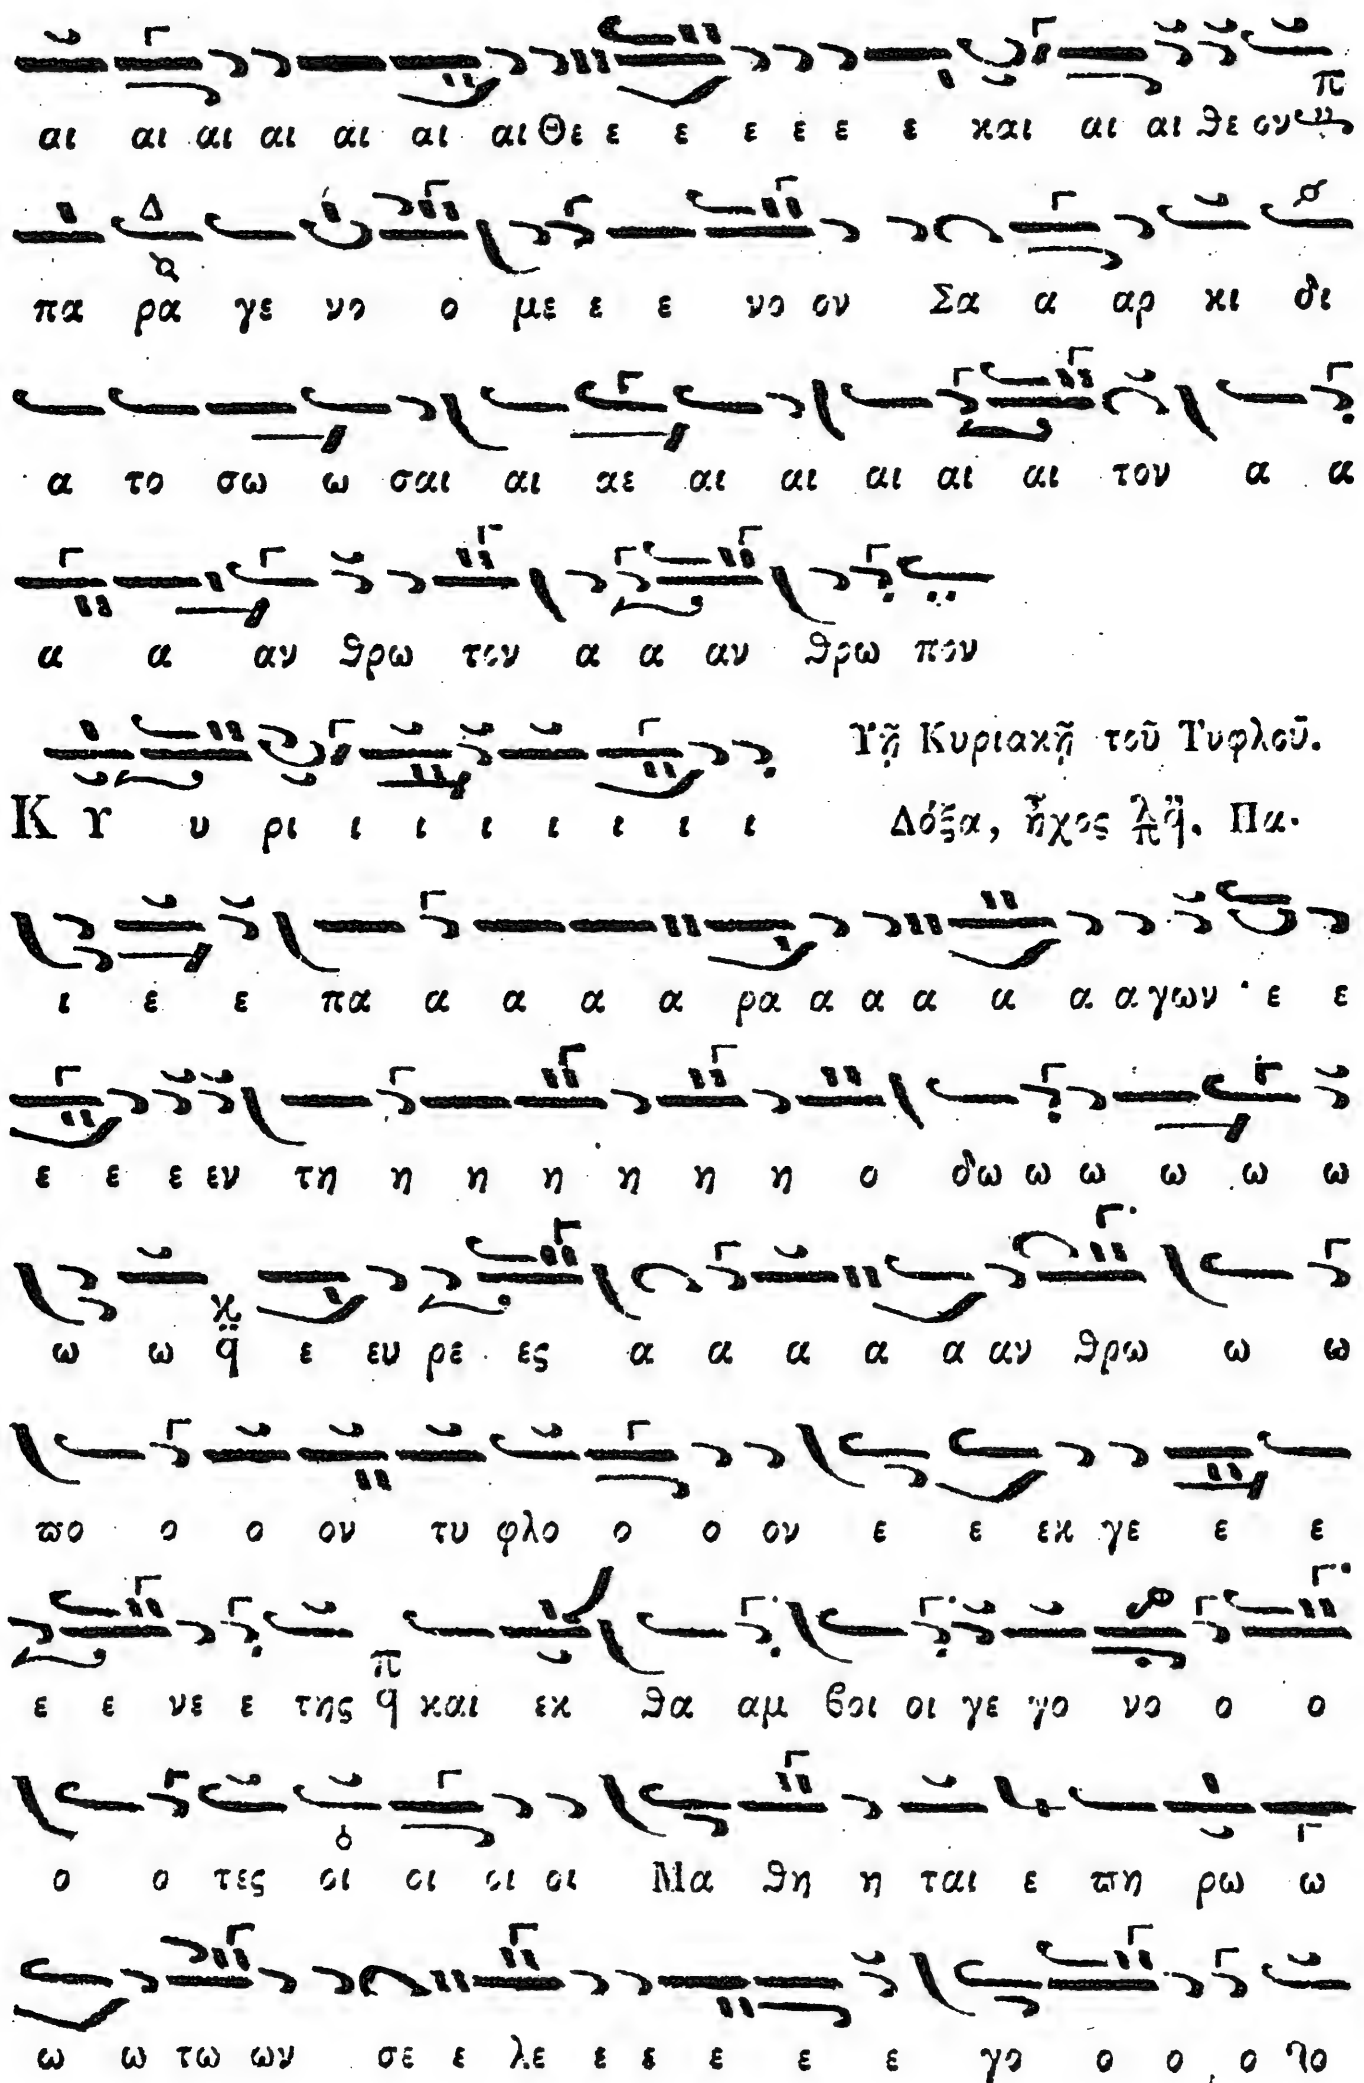 αι αι αι αι αι αι αι Θε ε ε ε ε ε ε και αι αι θε ον π
πα ρα γε νο ο με ε ε νο ον Σα α αρ κι δι
α το σω ω σαι αι αε αι αι αι αι αι τον α α
α α αν θρω τον α α αν θρω πον
Τῇ Κυριακῇ τοῦ Τυφλοῦ.
Κ Υ υ ρι ι ι ι ι ι ι Δόξα, ἦχος λ π q̈. Πα.
ι ε ε πα α α α α ρα α α α α α α γων ε ε
ε ε ε εν τη η η η η η η ο δω ω ω ω ω ω
ω ω ϗ q̈ ε ευ ρε ες α α α α α αν θρω ω ω
ϖο ο ο ον τυ φλο ο ο ον ε ε εκ γε ε ε
ε ε νε ε της π q και εκ θα αμ βοι οι γε γο νο ο ο
ο ο τες οι οι οι οι Μα θη η ται ε ϖη ρω ω
ω ω τω ων σε ε λε ε ε ε ε ε γο ο ο ο